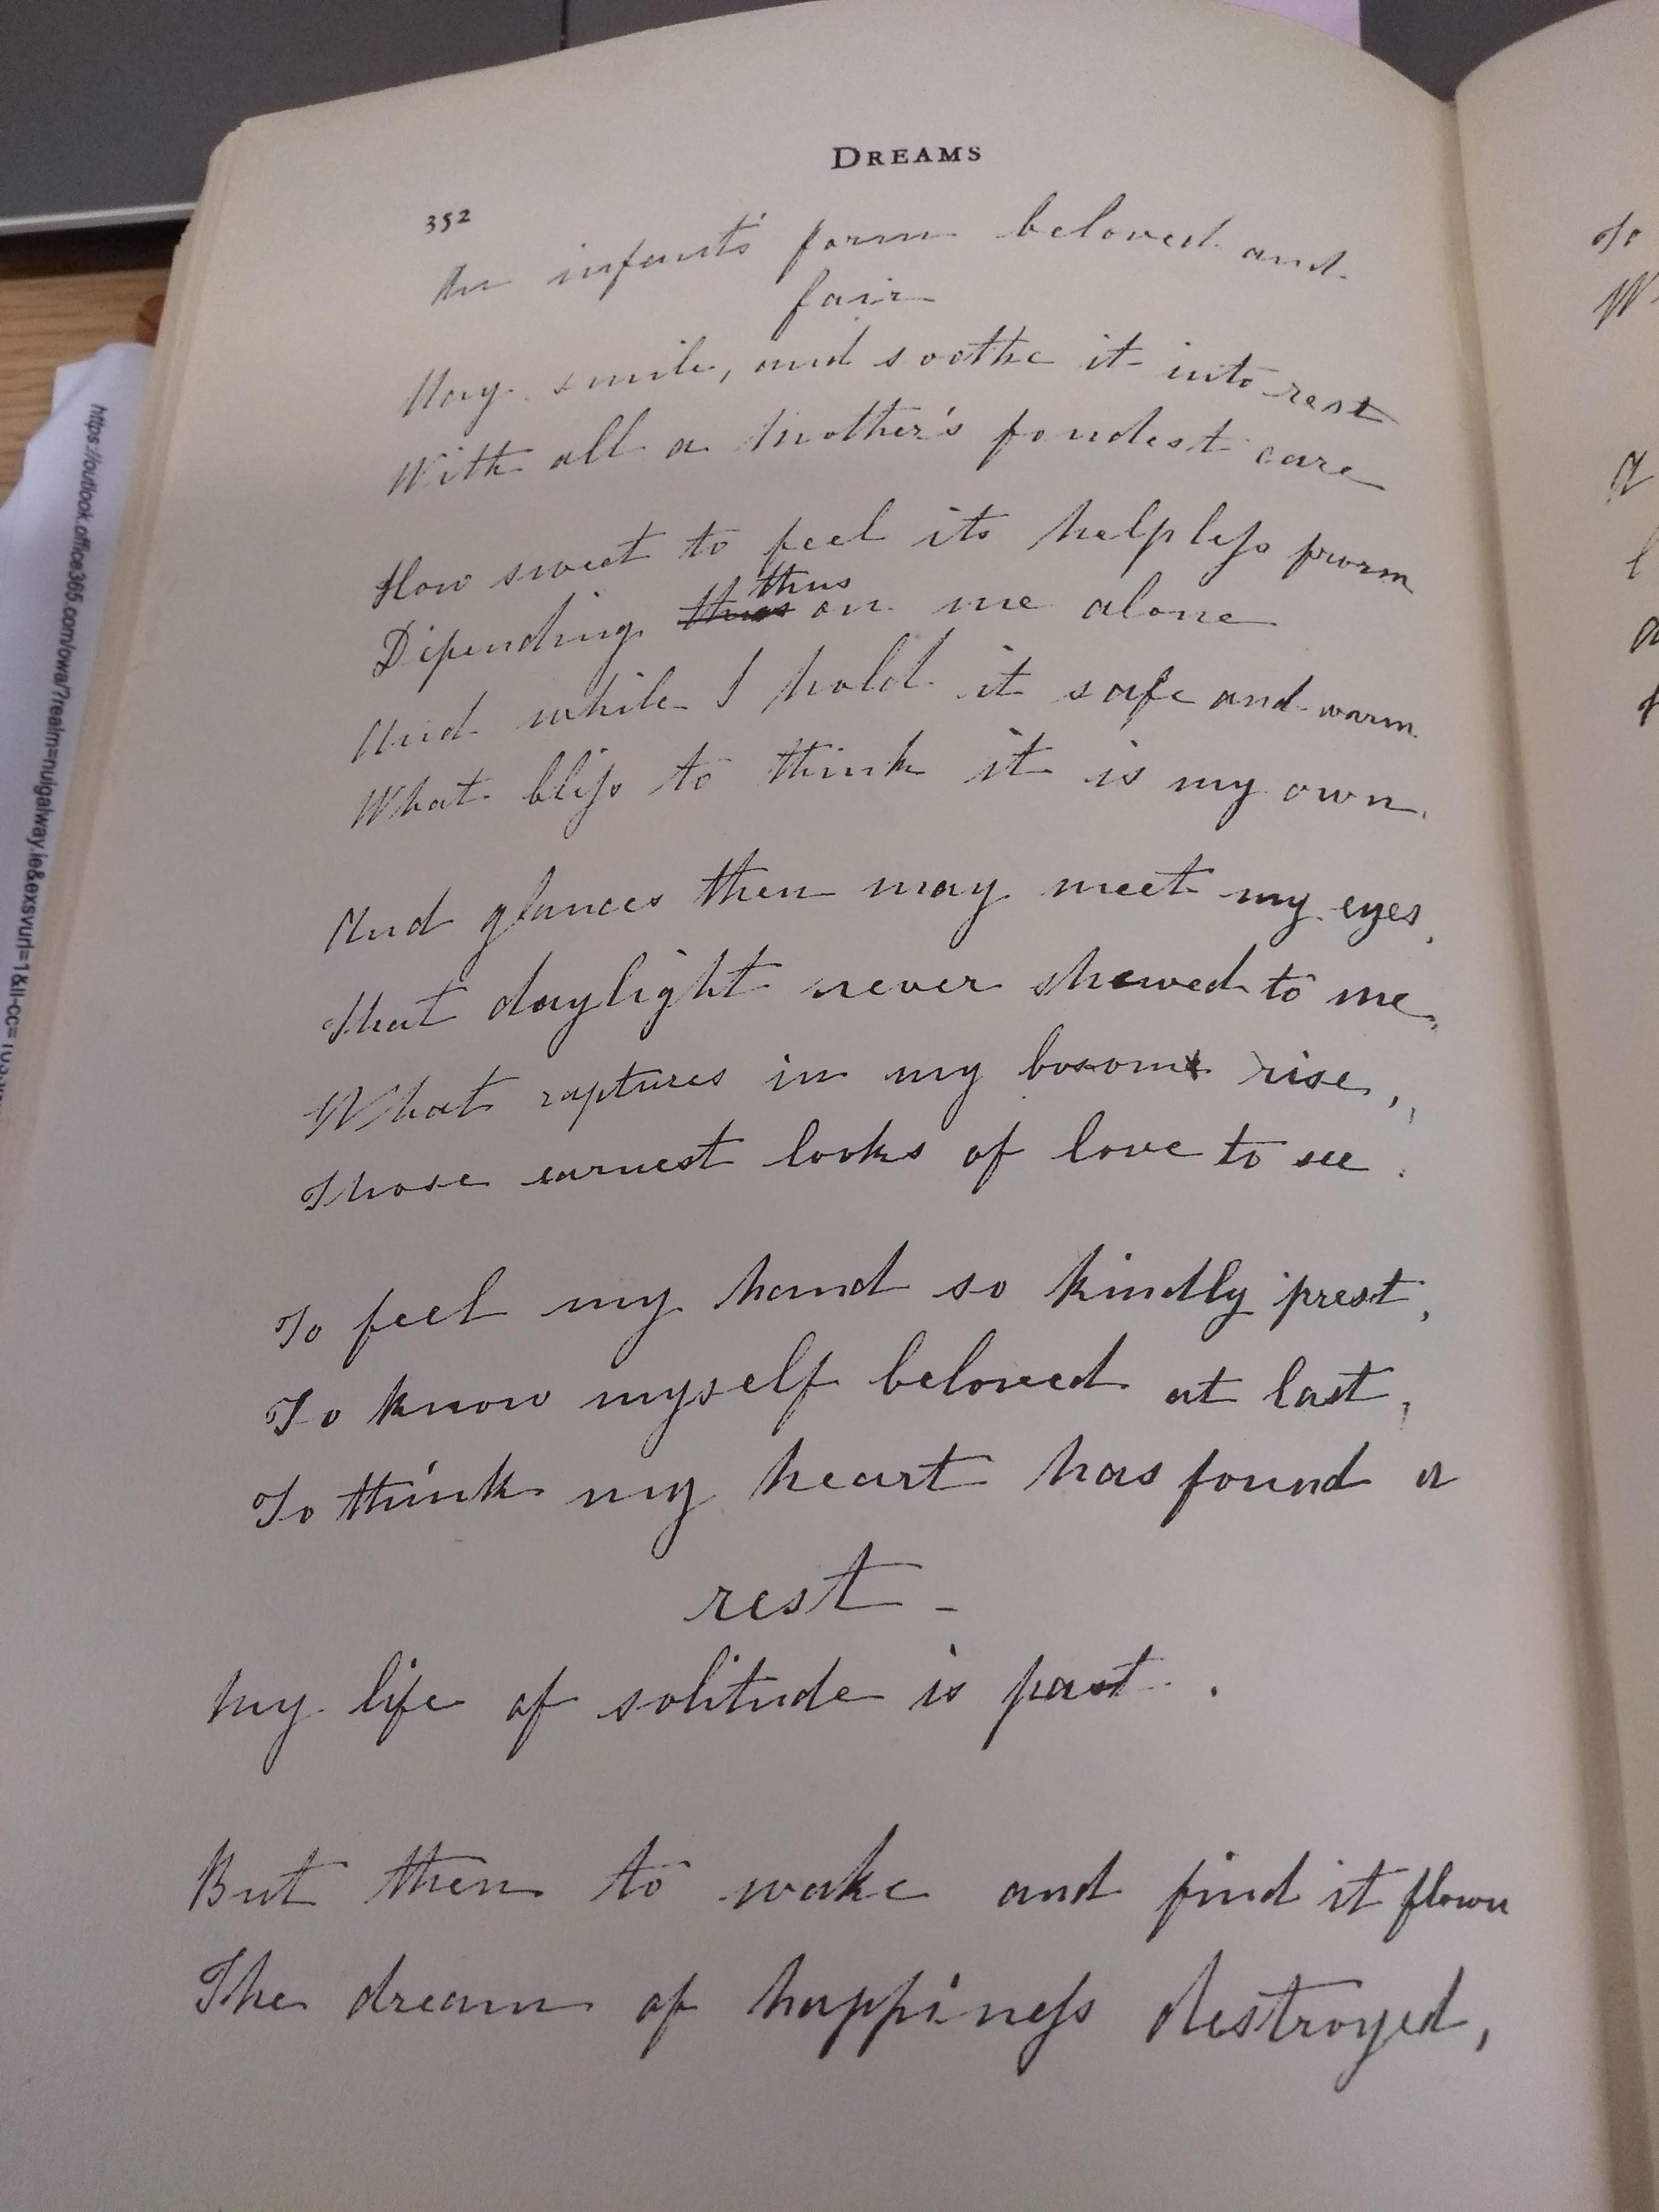 DREAMS
352
An infant's form beloved and
fair
May smile, and soothe it into rest
With all a Mother's fondest care
How sweet to feel its helpless form
Depending thus thus on me alone
And while I hold it safe and warm
What bliss to think it is my own.
And glances then may meet my eyes,
That daylight never shewed to me,
What raptures in my bosom rise,,
Those earnest looks of love to see.
To feel my hand so kindly prest,
To know myself beloved at last,
To think my heart has found a
rest -
My life of solitude is past.
But then to wake and find it flown
The dream of happiness destroyed,
https://outlook.office365.com/owa/?realm=nuigalway.ie&exsvurl=1&ll-cc=
To
W